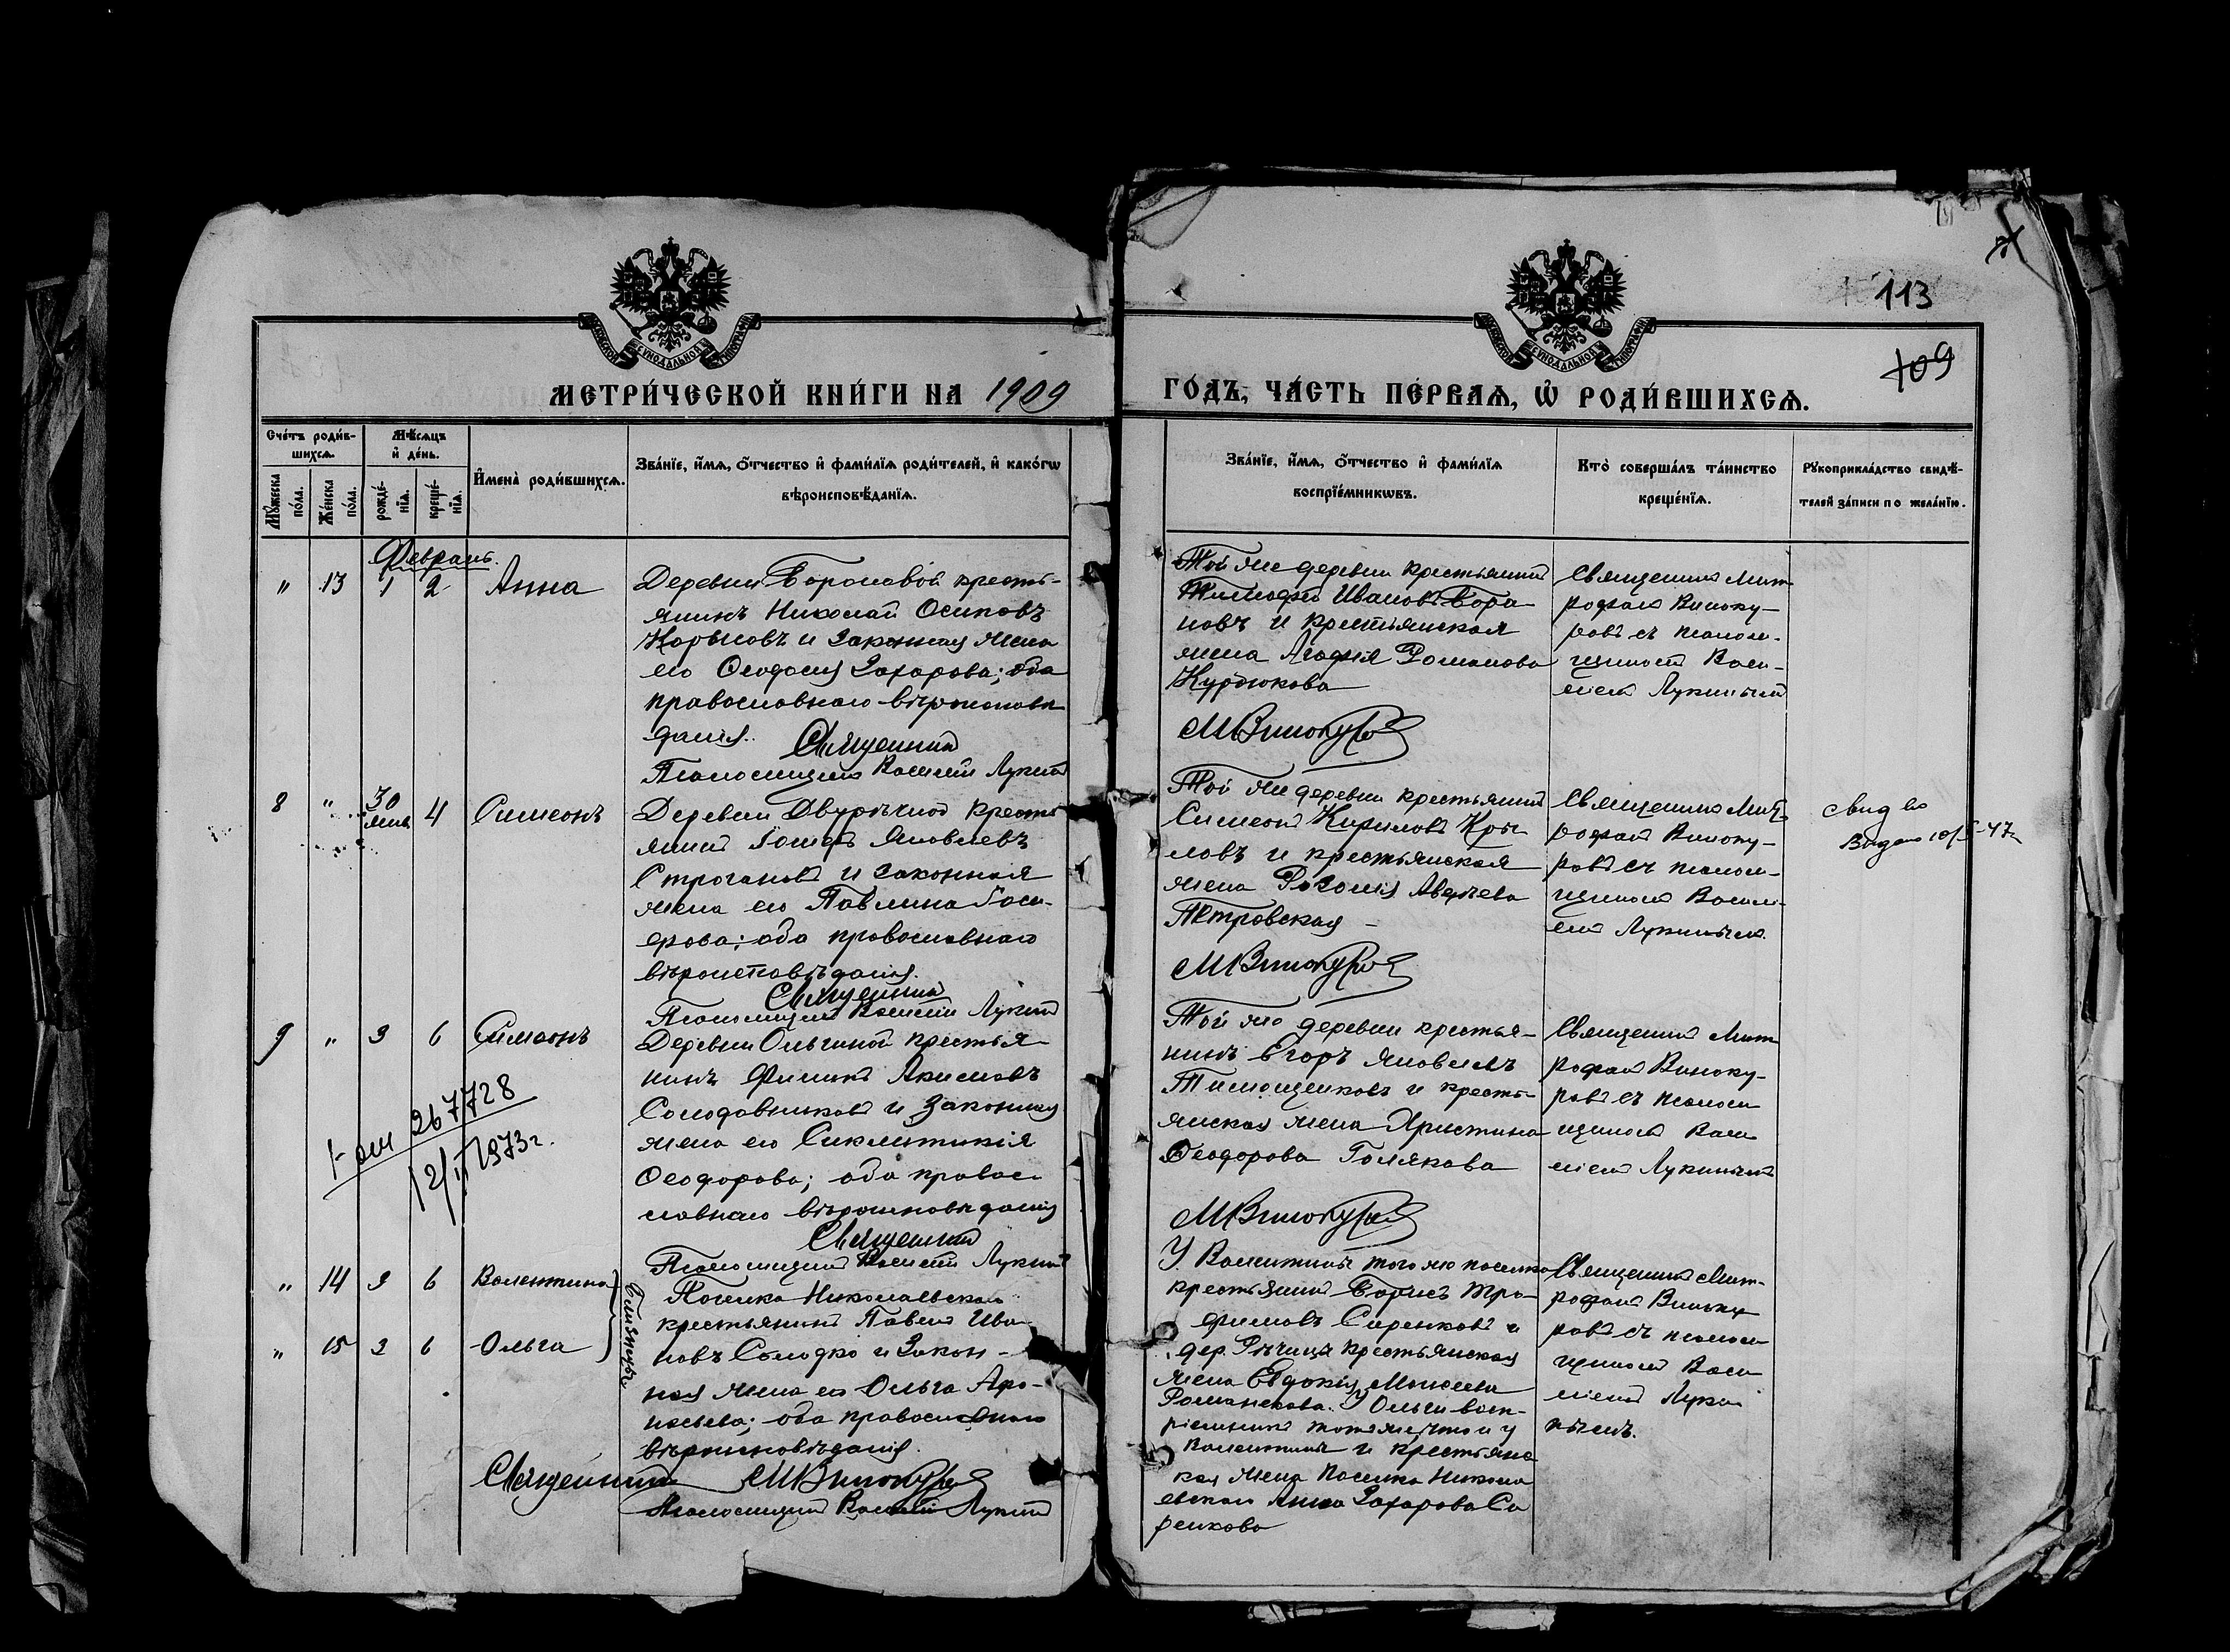 113
109
МЕТРИ́ЧЕСКОЙ КНИ́ГИ НА 1909
ГО́ДЪ, ЧА́СТЬ ПЕ́РВАѦ, Ѽ РОДИ́ВШИХСѦ.
Сче́тъ роди́в-
шихсѧ.
Мѣ́сѧцъ
и҆ де́нь.
Мꙋ́жеска
по́ла.
Же́нска
по́ла.
рожде́-
нїѧ.
креще́-
нїѧ.
И҆мена̀ роди́вшихсѧ.
Зва́нїе, и҆́мѧ, ѻ҆́тчество и҆ фами́лїѧ роди́телей, и҆ како́гѡ
вѣроисповѣ́данїѧ.
Зва́нїе, и҆́мѧ, ѻ҆́тчество и҆ фами́лїѧ
воспрїе́мникѡвъ.
Кто̀ соверша́лъ та́инство
креще́нїѧ.
Рꙋкоприкла́дство свидѣ́-
телей за́писи по жела́нїю.
Февраль.
" 13 1 2 Анна
Деревни Вороновой кресть-
янинъ Николай Осиповъ
и законная жена
его Ѳеодосія Захарова; оба
православнаго вѣроисповѣ
данія. Священникъ
Псаломщикъ Василій Лукинъ
Той же деревни крестьянинъ
Тимофей Ивановъ Воро
новъ и крестьянская
жена Агафія Романова
Курдюкова
МВинокуровъ
Священникъ Мит
рофанъ Виноку-
ровъ съ псалом-
щикомъ Васи-
ліемъ Лукинымъ
8 " 30 янв 4 Симеонъ
Деревни Двурѣчной кресть
янинъ Яковлевъ
Строгановъ и законная
жена его Павлина
оба православнаго
вѣроисповѣданія.
Священникъ
Псаломщикъ Василій Лукинъ
Той же деревни крестьянинъ
Симеонъ Кириловъ Кры
ловъ и крестьянская
жена Авдѣева
Петровская -
МВинокуровъ
Священникъ Мит
рофанъ Виноку-
ровъ съ псалом-
щикомъ Васили-
емъ Лукинымъ.
Свид во
Видано 10/5-47
9 " 3 6 Симеонъ
Деревни Ольгиной крестья-
нинъ Филипъ Акимовъ
Солодовниковъ и законная
жена его Синклитикія
Ѳеодорова; оба правос-
лавнаго вѣроисповѣданія
Священникъ
Псаломщикъ Василій Лукинъ
Той же деревни крестья-
нинъ Егоръ Яковлевъ
Тимощенковъ и кресть-
янская жена Христина
Ѳеодорова Голякова
МВинокуровъ
Священникъ Мит
рофанъ Виноку-
ровъ съ псалом
щикомъ Васи
ліемъ Лукинымъ
267728
12/II 1973г.
" 14 3 6 Валентина
" 15 3 6 Ольга
Близнецы
Поселка Николаевскаго
крестьянинъ Павелъ Ива-
новъ Солодко и закон-
ная жена его Ольга
оба православнаго
вѣроисповѣданія.
Священникъ МВинокуровъ
Псаломщикъ Василій Лукинъ
У Валентины того же поселка
крестьянинъ Борисъ Тро-
фимовъ Саренковъ и
дер. Рѣчица крестьянская
жена Евдокія Моисеева
Романенкова. У Ольги восп-
ріемники тотъ же что и у
Валентины и крестьянс
кая жена поселка Никола
евскаго Анна Захарова Са
ренкова
Священникъ Мит-
рофанъ Виноку
ровъ съ псалом
щикомъ Васи
ліемъ Луки
нымъ.